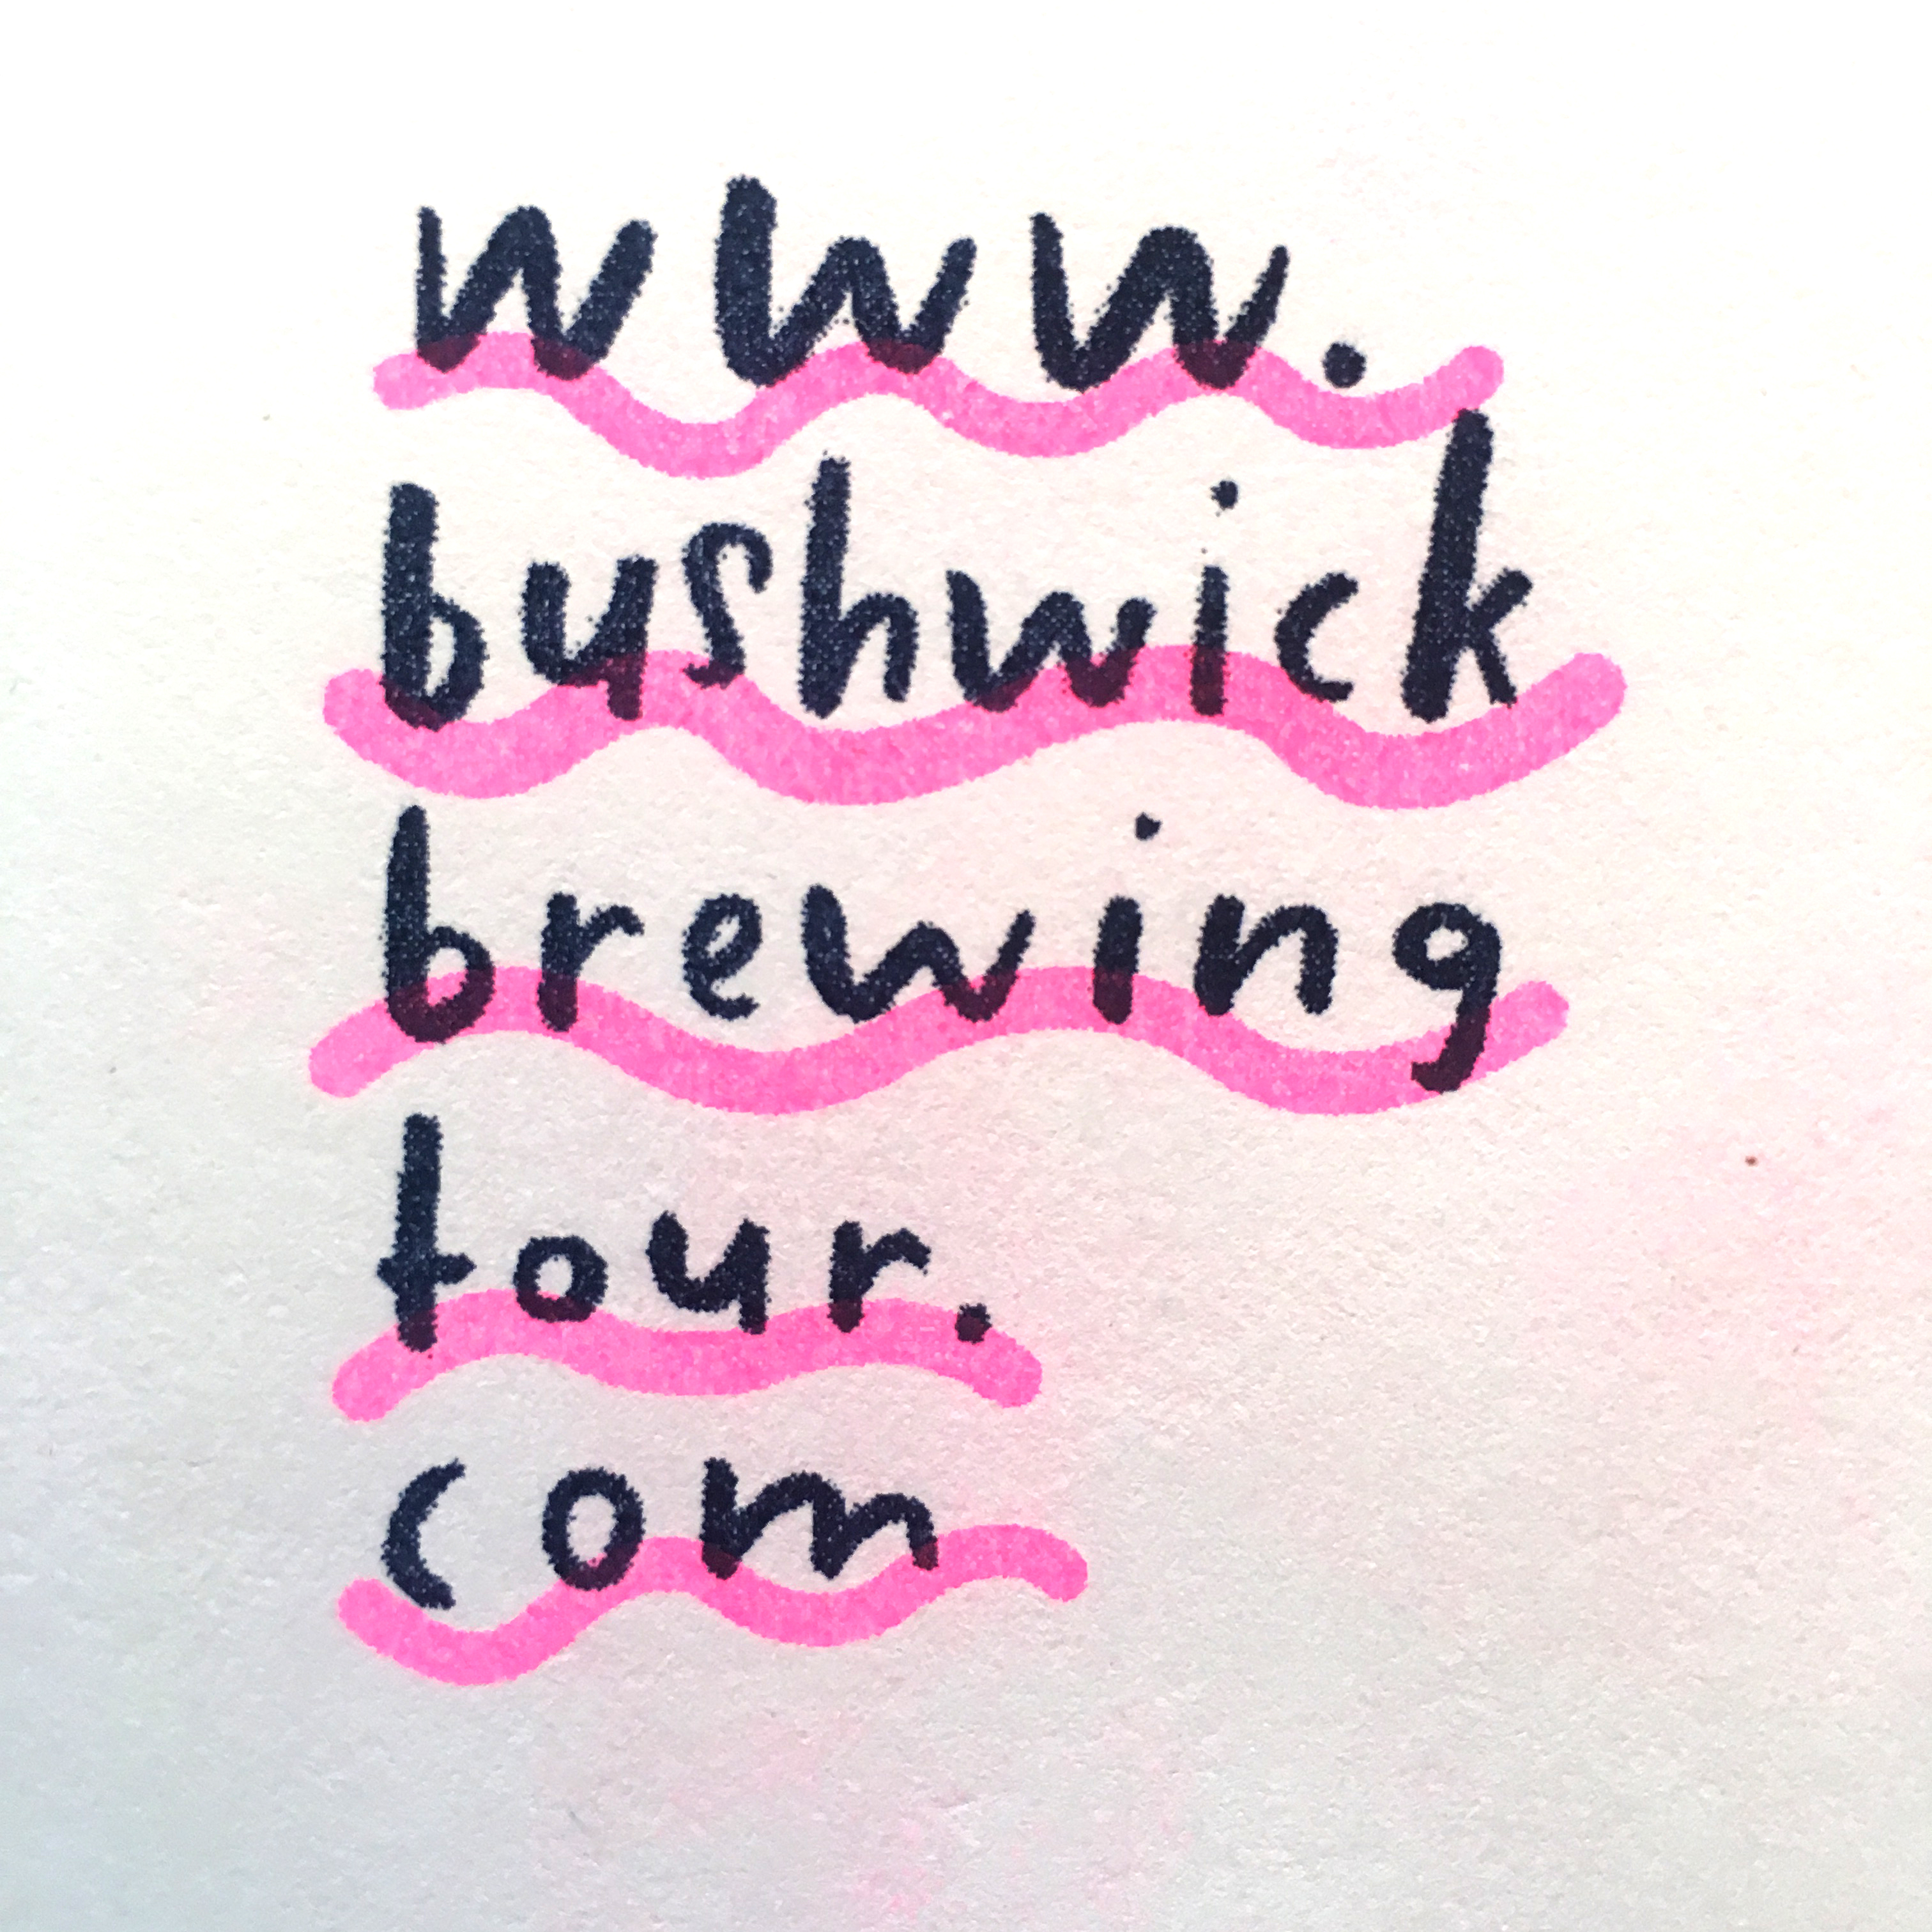 www.
bushwick
brewing
tour.
com